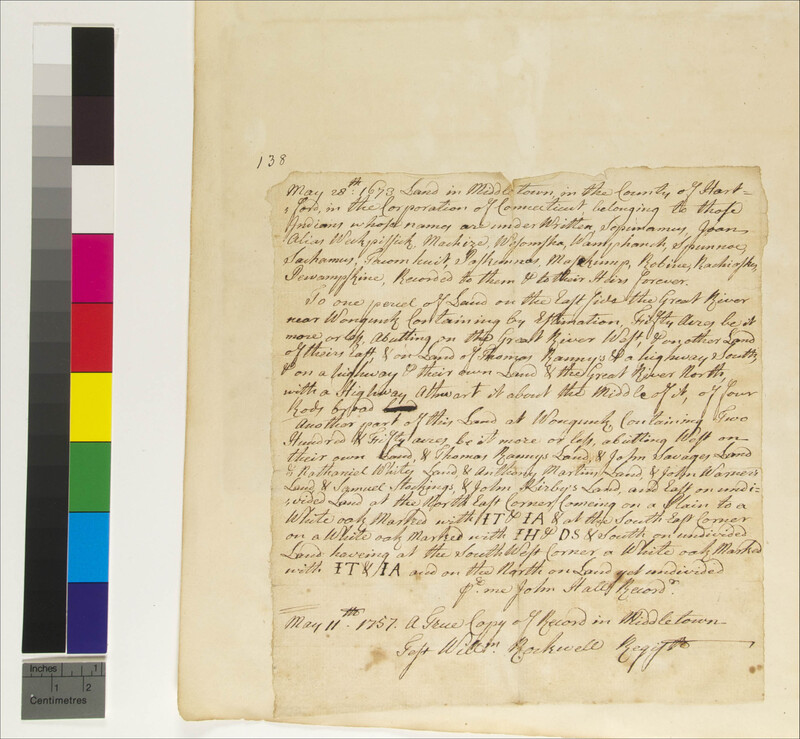 138
May 28th: 1673, Land in Middletown, in the County of Hart=
=ford, in the Corporation of Connecticut belonging to those
Indians whose names are under Written, Sepunamus, Joan
Alias Weekpissick, Machize, Wesomsha, Wamphanch, Spunnoe,
Sachamus, Taccumhuit, Paskunnas, Maskump, Robine, Rachiaske,
Pewampskine, Recorded to them & to their Heirs forever.
To one percel of Land on the East side the Great River
near Wongunk Containing by Estmation, Fifty Acres be it
more or less, abutting on the Great River West, & on other Land
of theirs East & on Land of Thomas Rannys & a highway South,
& on a highway & their own Land & the Great River North,
with a Highway Athwart it about the Middle of it, of four
Rods broad
Another part of this Land at Wongunk, Containing Two
Hundred & Fifty acres, be it more or less, abutting West on
their own Land, & Thomas Rannys Land, & John Savages Land
& Nathaniel Whites Land, & Anthony Martins Land, & John Warners
Land & Samuel Stockings, & John Kirbys Land, and East on undi=
=vided Land at the North East Corner Comeing on a Plain to a
White oak Marked with IT & IA & at the South East Corner
on a White oak Marked with IH & DS & South on undivided
Land haveing at the South West Corner a White oak Marked
with IT & IA and on the North on Land yet undivided
pr me John Hall Recordr.
May 11th. 1757. A True Copy of Record in Middletown
Test Willm. Rockwell Registr
Inches
1
1
2
Centimetres